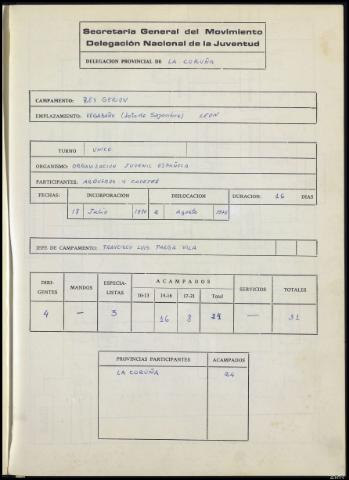 Secretaria General del Movimiento
Delegación Nacional de la Juventud
DELEGACION PROVINCIAL DE LA CORUÑA
CAMPAMENTO: REY GERION
EMPLAZAMIENTO: VEGABAÑO (Soto de Sajambre) LEON
TURNO UNICO
ORGANISMO: ORGANIZACION JUVENIL ESPAÑOLA
PARTICIPANTES: ARQUEROS Y CADETES
FECHAS: INCORPORACION DISLOCACION DURACION: 16 DIAS
18 Julio 1970 2 Agosto 1970
JEFE DE CAMPAMENTO: FRANCISCO LUIS PARGA VILA
DIRIGENTES MANDOS ESPECIALISTAS ACAMPADOS SERVICIOS TOTALES
10-13 14-16 17-21 Total
4 — 3 16 8 24 — 31
PROVINCIAS PARTICIPANTES ACAMPADOS
LA CORUÑA 24